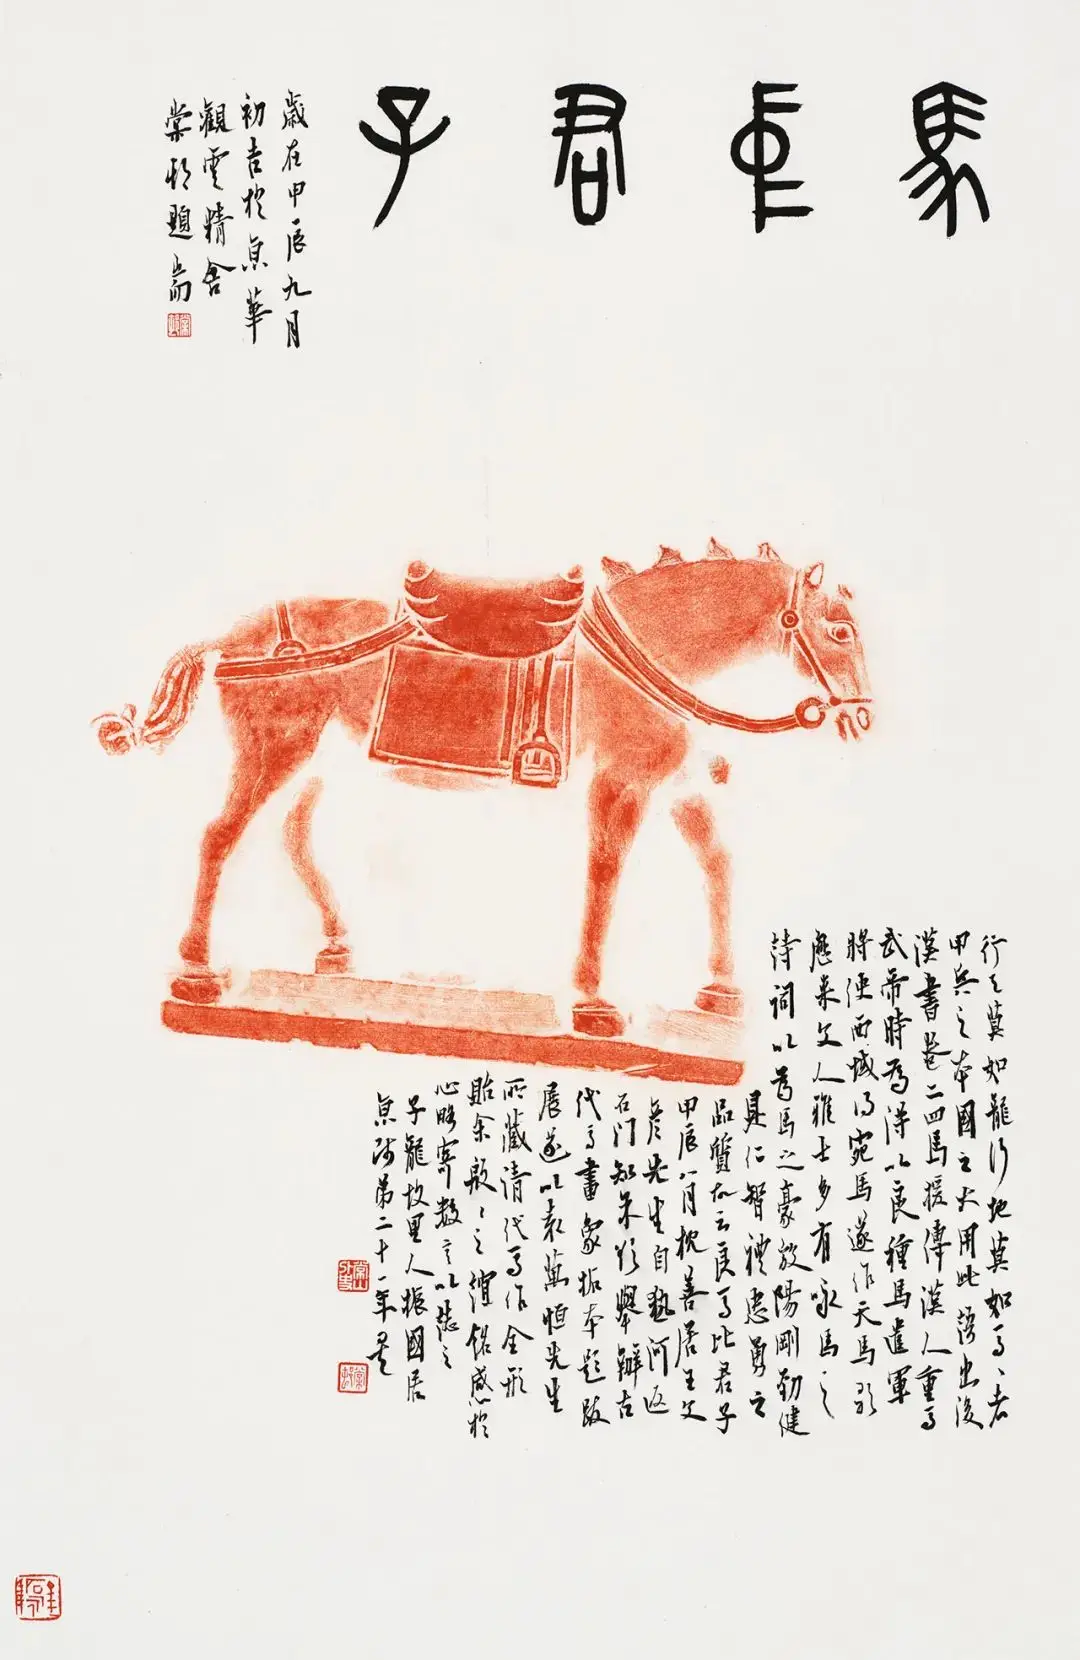 馬中君子
歲在甲辰九月
初吉於京華
觀雲精舍
棠邨題耑
行天莫如龍行地莫如馬〻者
甲兵之本國之大用此語出後
漢書卷二四馬援傳漢人重馬
武帝時為得以良種馬遣軍
將使西域得宛馬遂作天馬歌
歷來文人雅士多有咏馬之
詩詞以為馬之豪放陽剛勁健
具仁智禮忠勇之
品質故云良馬比君子
甲辰八月枕善居王文
先生自河返
石門知朱欣舉辦古
代馬畫象拓本題跋
展遂以袁萬恒先生
所藏清代馬作全形
貽余殷〻之誼銘感於
心略寄數言以誌之
子龍故里人振國居
京師第二十一年矣